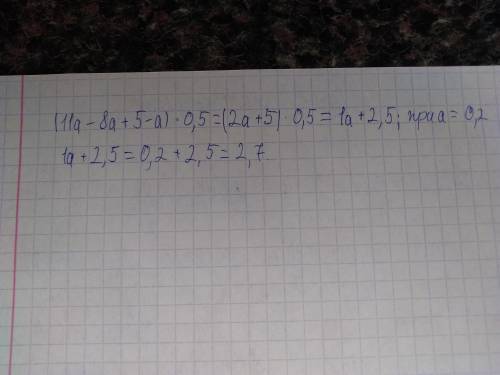 (11a - 8a + 5 - a) · 0,5 = (2a + 5) · 0,5 = 1a + 2,5; при a = 0,2
1a + 2,5 = 0,2 + 2,5 = 2,7.